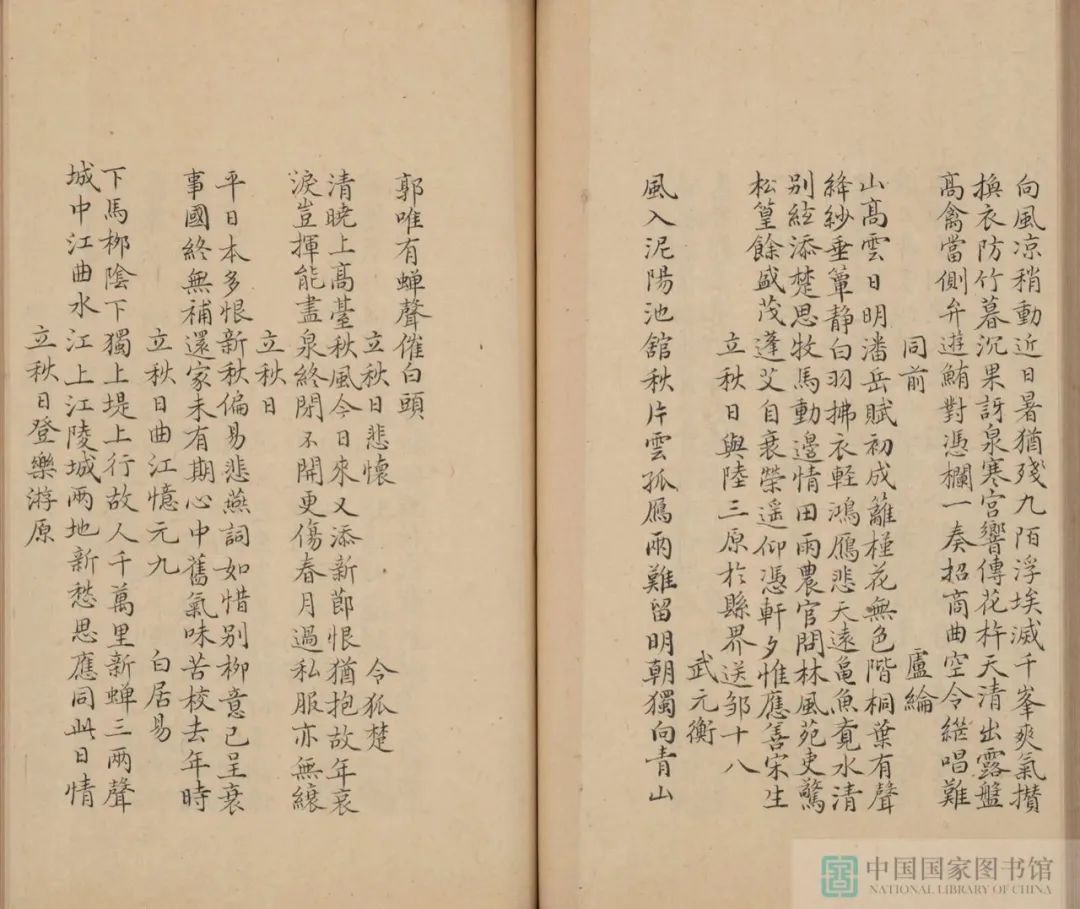 向風凉稍動近日暑猶殘九陌浮埃滅千峯爽氣攅
換衣防竹暮沉果訝泉寒宫響傳花杵天清出露盤
高禽當側弁遊鮪對憑欄一奏招商曲空令繼唱難
同前 盧綸
山高雲日明潘岳賦初成籬槿花無色階桐葉有聲
絳紗垂簟静白羽拂衣輕鴻鴈悲天遠龜魚覔水清
别絃添楚思牧馬動邊情田雨農官問林風苑吏驚
松篁餘盛茂蓬艾自衰榮遥仰憑軒夕惟應善宋生
立秋日與陸三原於縣界送邹十八
武元衡
風入泥陽池舘秋片雲孤鴈兩難留明朝獨向青山
郭唯有蝉聲催白頭
立秋日悲懷 令狐楚
清曉上高臺秋風今日來又添新節恨猶抱故年哀
淚豈揮能盡泉終閉不開更傷春月過私服亦無縗
立秋日
平日本多恨新秋偏易悲燕詞如惜别柳意已呈衰
事國終無補還家未有期心中舊氣味苦校去年時
立秋日曲江憶元九 白居易
下馬柳陰下獨上堤上行故人千萬里新蝉三兩聲
城中江曲水江上江陵城兩地新愁思應同此日情
立秋日登樂游原
中国国家图书馆
NATIONAL LIBRARY OF CHINA